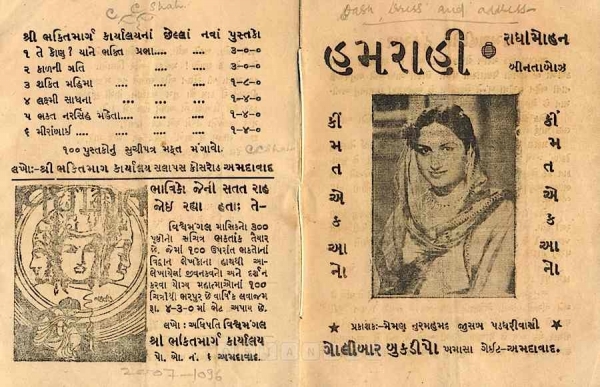 C. C. Shah
શ્રી ભક્તિમાર્ગ કાર્યાલયનાં છેલ્લાં નવાં પુસ્તકો
૧ તે કોણ? યાને ભક્તિ પ્રભા.... ૩-૦-૦
૨ કાળની ગતિ .... .... ૩-૦-૦
૩ શક્તિ મહિમા .... .... ૧-૮-૦
૪ લક્ષ્મી સાધના .... .... ૧-૪-૦
૫ ભક્ત નરસિંહ મહેતા.... .... ૧-૪-૦
૬ મીરાંબાઈ .... .... ૧-૪-૦
૧૦૦ પુસ્તકોનું સુચીપત્ર મફત મંગાવો.
લખો:-શ્રી ભક્તિમાર્ગ કાર્યાલય સલાપસ ક્રોસરોડ અમદાવાદ
ભાવિકો જેની સતત રાહ
જોઈ રહ્યા હતા: તે-
વિશ્વમંગલ માસિકનો ૩૦૦
પૃષ્ઠોનો સચિત્ર ભક્તાંક તૈયાર
છે. જેમાં ૧૦૦ ઉપરાંત ભક્તોનાં
વિદ્વાન લેખકોના હાથથી આ-
લેખાયેલાં જીવનકવનો અને દર્શન
કરવા યોગ્ય મહાત્માઓનાં ૧૦૦
ચિત્રોથી ભરપુર છે વાર્ષિક લવાજમ
રૂા. ૪-૩-૦ માં ભેટ અપાય છે.
લખો : અધિપતિ વિશ્વમંગલ
શ્રી ભક્તિમાર્ગ કાર્યાલય
પો. બો. નં. ૬ અમદાવાદ.
2007-1096
dress and address
હમરાહી
રાધામોહન
બીનતાબોઝ
કીંમત એક આનો
કીંમત એક આનો
★ પ્રકાશક:-મેમણ નુરમહમદ જુસબ પડધરીવાલા ★
ગોલીબાર બુકડીપો ખમાસા ગેઈટ-અમદાવાદ.